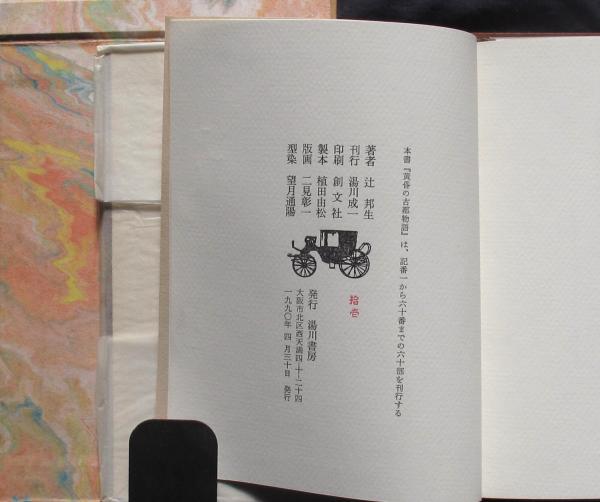 本書『黄昏の古都物語』は、記番一から六十番までの六十部を刊行する
著者 辻 邦生
刊行 湯川成一
印刷 創文社
製本 植田由松
版画 二見彰一
型染 望月通陽
拾壱
発行 湯川書房
大阪市北区西天満四ー二ー十四
一九九〇年 四月三十日 発行